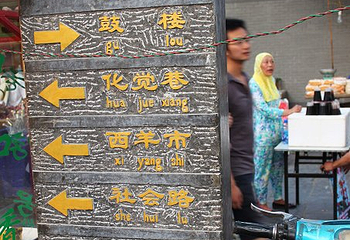 鼓楼
gu lou
化觉巷
hua jue xiang
西羊市
xi yang shi
社会路
she hui lu